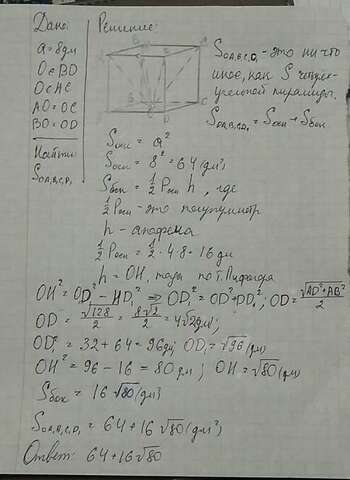 Дано:
a = 8дм
O ∈ BD
O ∈ AC
AO = OC
BO = OD
Найти:
S OA₁B₁C₁D₁
Решение:
S OA₁B₁C₁D₁ - это ни что
иное, как S четырёх-
угольной пирамиды.
S OA₁B₁C₁D₁ = Sосн + Sбок
Sосн = a²
Sосн = 8² = 64 (дм²)
Sбок = ½ Pосн h, где
½ Pосн - это полупериметр
h - апофема
½ Pосн = ½ · 4 · 8 = 16 дм
h = OH, тогда по т. Пифагора
OH² = OD₁² - HD₁² ⇒ OD₁² = OD² + DD₁²; OD = √AD² + AB² / 2
OD = √128 / 2 = 8√2 / 2 = 4√2 дм;
OD₁² = 32 + 64 = 96 дм; OD₁ = √96 (дм)
OH² = 96 - 16 = 80 дм; OH = √80 (дм)
Sбок = 16 √80 (дм²)
S OA₁B₁C₁D₁ = 64 + 16 √80 (дм²)
Ответ: 64 + 16 √80